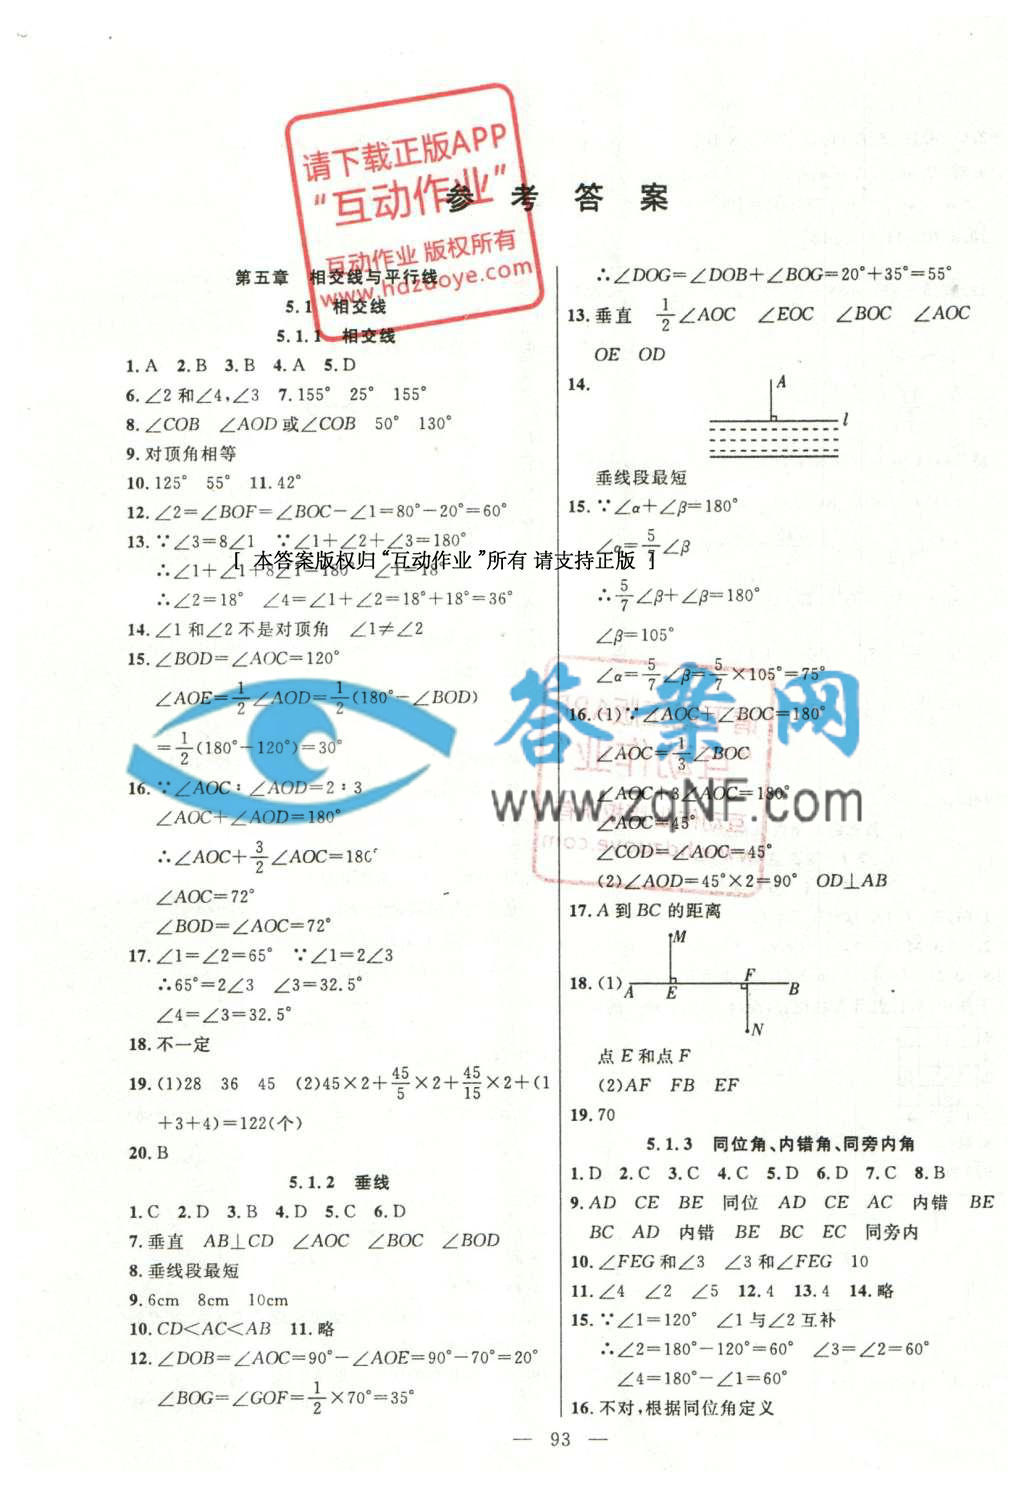 请下载正版APP
“互动作业”
互动作业 版权所有
www.hdzuoye.com
参 考 答 案
第五章 相交线与平行线
5.1 相交线
5.1.1 相交线
1.A 2.B 3.B 4.A 5.D
6.∠2和∠4,∠3 7.155° 25° 155°
8.∠COB ∠AOD或∠COB 50° 130°
9.对顶角相等
10.125° 55° 11.42°
12.∠2=∠BOF=∠BOC-∠1=80°-20°=60°
13.∵∠3=8∠1 ∵∠1+∠2+∠3=180°
[ 本答案版权归“互动作业 ”所有 请支持正版 ]
∴∠1+∠1+8∠1=180°
∴∠2=18° ∠4=∠1+∠2=18°+18°=36°
14.∠1和∠2不是对顶角 ∠1≠∠2
15.∠BOD=∠AOC=120°
∠AOE=1/2∠AOD=1/2(180°-∠BOD)
=1/2(180°-120°)=30°
16.∵∠AOC∶∠AOD=2∶3
∠AOC+∠AOD=180°
∴∠AOC+3/2∠AOC=180°
∠AOC=72°
∠BOD=∠AOC=72°
17.∠1=∠2=65° ∵∠1=2∠3
∴65°=2∠3 ∠3=32.5°
∠4=∠3=32.5°
18.不一定
19.(1)28 36 45 (2)45×2+45/5×2+45/15×2+(1
+3+4)=122(个)
20.B
5.1.2 垂线
1.C 2.D 3.B 4.D 5.C 6.D
7.垂直 AB⊥CD ∠AOC ∠BOC ∠BOD
8.垂线段最短
9.6cm 8cm 10cm
10.CD<AC<AB 11.略
12.∠DOB=∠AOC=90°-∠AOE=90°-70°=20°
∠BOG=∠GOF=1/2×70°=35°
∴∠DOG=∠DOB+∠BOG=20°+35°=55°
13.垂直 1/2∠AOC ∠EOC ∠BOC ∠AOC
OE OD
14.
A
l
垂线段最短
15.∵∠α+∠β=180°
∠α=5/7∠β
∴5/7∠β+∠β=180°
∠β=105°
∠α=5/7∠β=5/7×105°=75°
答案网
www.zqNF.com
16.(1)∵∠AOC+∠BOC=180°
∠AOC=1/3∠BOC
∠AOC+3∠AOC=180°
∠AOC=45°
∠COD=∠AOC=45°
(2)∠AOD=45°×2=90° OD⊥AB
17.A到BC的距离
18.(1)
M
A E F B
N
点E和点F
(2)AF FB EF
19.70
5.1.3 同位角、内错角、同旁内角
1.D 2.C 3.C 4.C 5.D 6.D 7.C 8.B
9.AD CE BE 同位 AD CE AC 内错 BE
BC AD 内错 BE BC EC 同旁内
10.∠FEG和∠3 ∠3和∠FEG 10
11.∠4 ∠2 ∠5 12.4 13.4 14.略
15.∵∠1=120° ∠1与∠2互补
∴∠2=180°-120°=60° ∠3=∠2=60°
∠4=180°-∠1=60°
16.不对,根据同位角定义
— 93 —